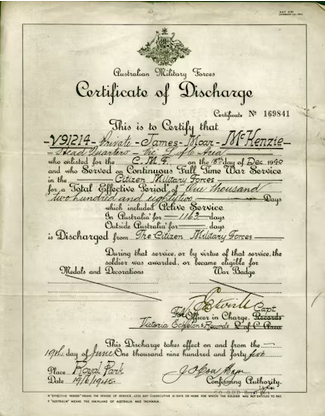 Australian Military Forces
Certificate of Discharge
Certificate No 169841
This is to Certify that
V91214 Private James Moar McKenzie
Head Quarters
who enlisted for the C.M.F. on the 8th day of Dec 1940
and who Served on Continuous Full Time War Service
in the Citizen Military Forces
for a Total Effective Period of One thousand
two hundred and eighty two Days
which included Active Service
In Australia for 1162 days
Outside Australia for days
is Discharged from The Citizen Military Forces
During that service, or by virtue of that service, the
soldier was awarded, or became eligible for
Medals and Decorations War Badge
Capt
For Officer in Charge, Records
Victoria Echelon & Records
This Discharge takes effect on and from the
19th day of June One thousand nine hundred and forty five
Place Royal Park
Date 19/6/1945 Confirming Authority.